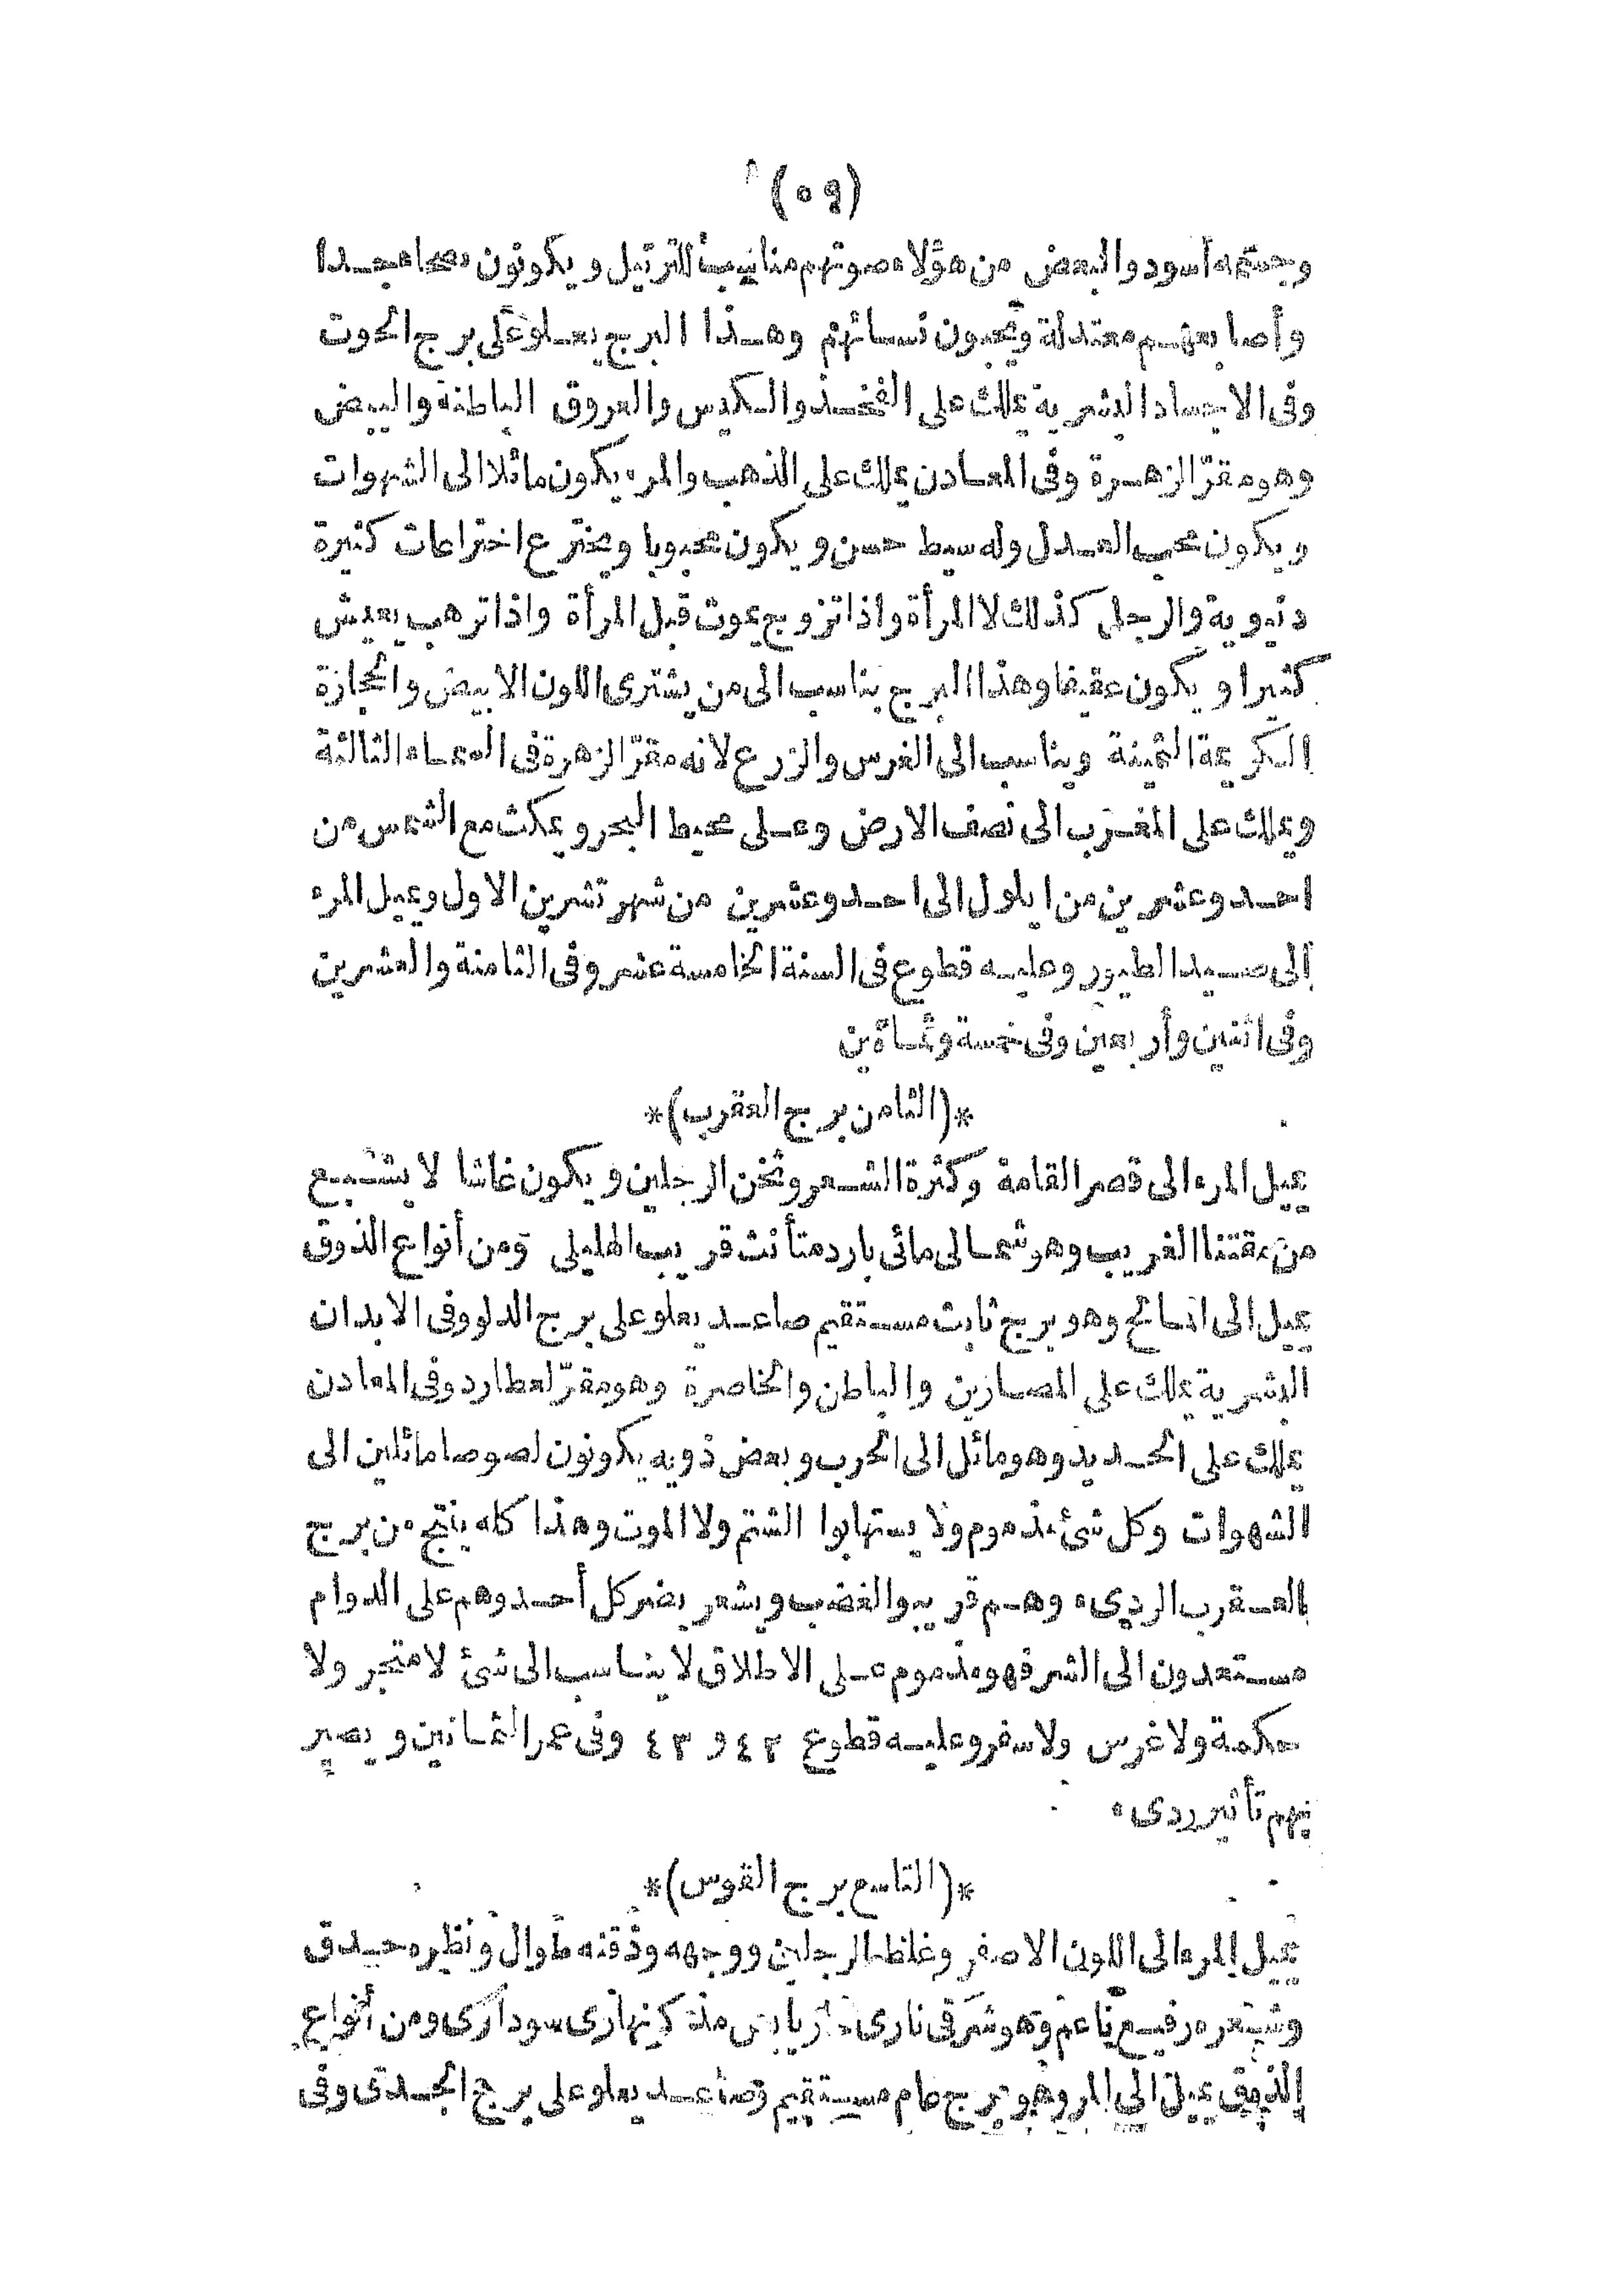 (٥٩)
وجسمه أسود والبعض من هؤلاء صوتهم مناسب للترتيل ويكونون فصحاء جدا
وأصابعهم معتدلة ويحبون نسائهم وهذا البرج يعلو على برج الحوت
وفى الاجساد البشرية يملك على الفخذ والكيس والعروق الباطنة والبيض
وهو مقرّ الزهرة وفى المعادن يملك على الذهب والمرء يكون مائلا الى الشهوات
ويكون محب العدل وله سيط حسن ويكون محبوبا ويخترع اختراعات كثيرة
دنيوية والرجل كذلك لا المرأة واذا تزوج يموت قبل المرأة واذا ترهب يعيش
كثيرا ويكون عفيفا وهذا البرج يناسب الى من يشترى اللون الابيض والحجارة
الكريمة الثمينة ويناسب الى الغرس والزرع لانه مقرّ الزهرة فى السماء الثالثة
ويملك على المغرب الى نصف الارض وعلى محيط البحر ويمكث مع الشمس من
احد وعشرين من ايلول الى احد وعشرين من شهر تشرين الاول ويميل المرء
الى صيد الطيور وعليه قطوع فى السنة الخامسة عشر وفى الثامنة والعشرين
وفى اثنين وأربعين وفى خمسة وثمانين
*(الثامن برج العقرب)*
يميل المرء الى قصر القامة وكثرة الشعر وثخن الرجلين ويكون غاشا لا يشبع
من مقتنا الغريب وهو شمالى مائى بارد متأنث قريب الهليلى ومن أنواع الذوق
يميل الى المالح وهو برج ثابت مستقيم صاعد يعلو على برج الدلو وفى الابدان
البشرية يملك على المصارين والباطن والخاصرة وهو مقرّ لعطارد وفى المعادن
يملك على الحديد وهو مائل الى الحرب وبعض ذويه يكونون لصوصا مائلين الى
الشهوات وكل شئ مذموم ولا يستهابوا الشتم ولا الموت وهذا كله ينتج من برج
العقرب الردىء وهم قريبو الغضب ويشعر بضر كل أحد وهم على الدوام
مستعدون الى الشر فهو مذموم على الاطلاق لا يناسب الى شئ لا متجر ولا
حكمة ولا غرس ولا سفر وعليه قطوع ٤٢ و ٤٣ وفى عمر الثمانين ويصير
فيهم تأثير ردىء
*(التاسع برج القوس)*
يميل المرء الى اللون الاصفر وغلظ الرجلين ووجهه وذقنه طوال ونظره حيدق
وشعره رفيع ناعم وهو شرقى نارى حار يابس مذكر نهارى سوداوى ومن أنواع
الذوق يميل الى المر وهو برج عام مستقيم وصاعد يعلو على برج الجدى وفى